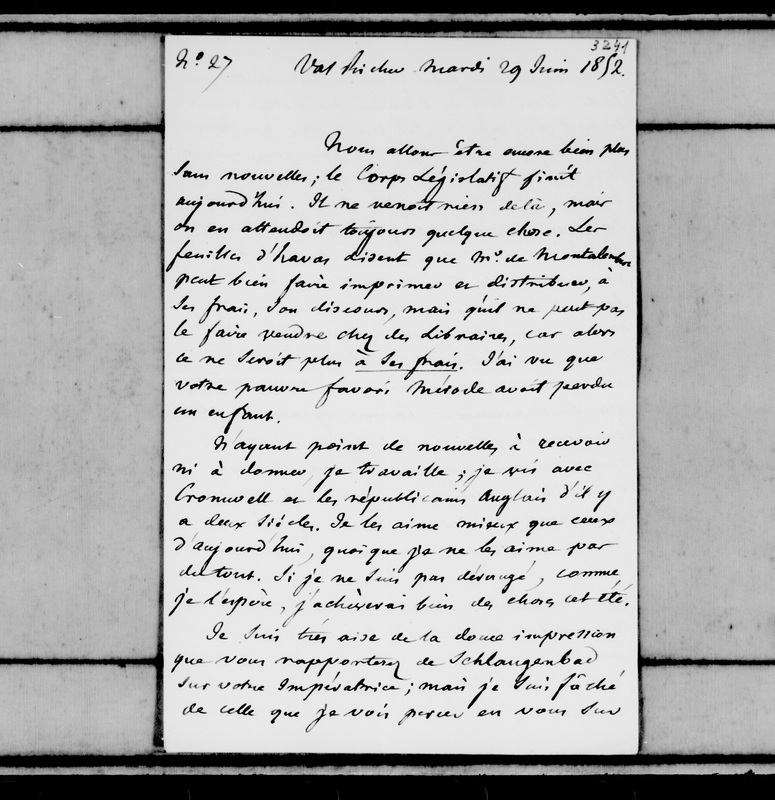 3241
N° 27 Val Richer Mardi 29 Juin 1852.
Nous allons être encore bien plus
sans nouvelles ; le Corps Législatif finit
aujourd'hui. Il ne venoit rien de là, mais
on en attendoit toujours quelque chose. Les
feuilles d'havas disent que Mr. de Montalembert
peut bien faire imprimer et distribuer, à
ses frais, son discours, mais qu'il ne peut pas
le faire vendre chez des Libraires, car alors
ce ne seroit plus à ses frais. J'ai vu que
votre pauvre favori Mérode avoit perdu
un enfant.
N'ayant point de nouvelles à recevoir
ni à donner, je travaille ; je vis avec
Cromwell et les républicains Anglais d'il y
a deux siècles. Je les aime mieux que ceux
d'aujourd'hui, quoique je ne les aime pas
du tout. Si je ne suis pas dérangé, comme
je l'espère, j'achèverai bien des choses cet été.
Je suis très aise de la douce impression
que vous rapportez de Schlangenbad
sur votre Impératrice ; mais je suis fâché
de celle que je vois percer en vous sur